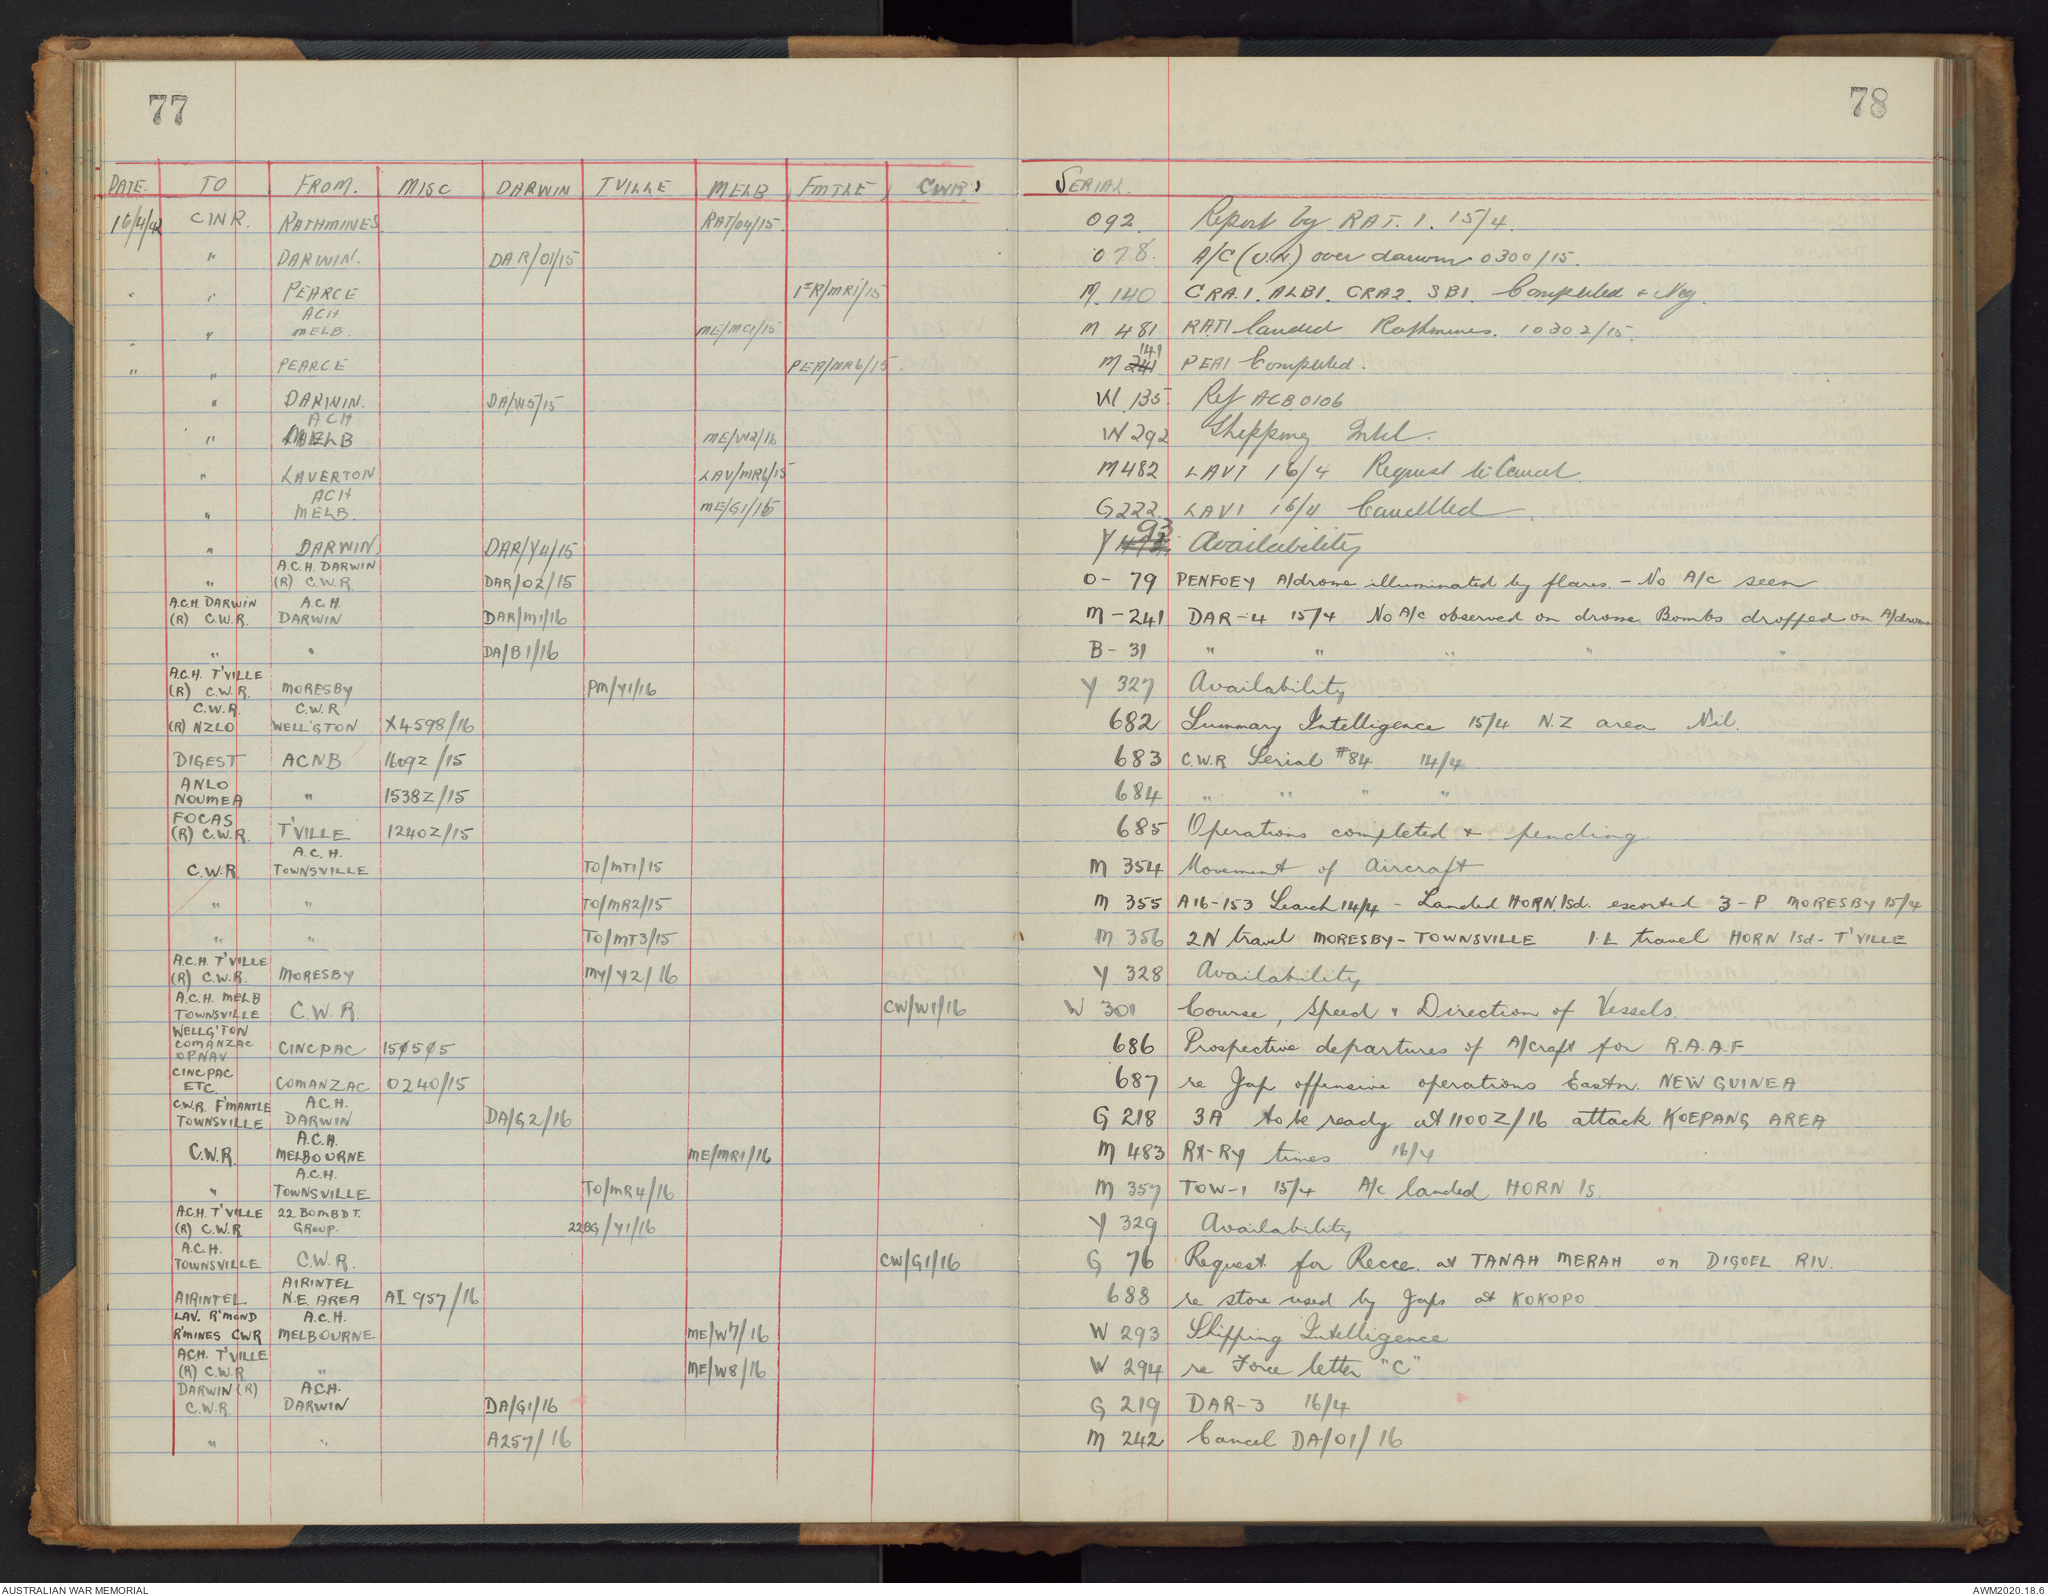 77
78
DATE. TO FROM. MISC DARWIN TVILLE MELB FMTLE CWR SERIAL.
16/4/42 CINR. RATHMINES RAT/04/15. 092. Report by RAT. 1. 15/4.
" DARWIN. DAR/01/15 078. A/C (U.N) over darwin 0300/15.
" " PEARCE /MR1/15 M. 140 CRA.1. ALB1. CRA2. SB1. Completed + Neg.
" " ACH MELB. ME/MC1/15 M 481 RAT1 landed Rathmines. 1030Z/15.
" " PEARCE PER/MR6/15. M 241 141 PEA1 Completed.
" DARWIN. DA/W5/15 W. 135 Ref ACB 0106
" ACH MELB ME/W2/16 W 292 Shipping Intel.
" LAVERTON LAV/MR6/15 M482 LAV1 16/4 Request to Cancel
" ACH MELB. ME/G1/16 G222. LAV1 16/4 Cancelled.
" DARWIN. DAR/Y4/15 Y 93 Availability
" A.C.H. DARWIN (R) C.W.R. DAR/02/15 O- 79 PENFOEY A/drome illuminated by flares. - No A/c seen
A.C.H. DARWIN (R) C.W.R. A.C.H. DARWIN DAR/M1/16 M-241 DAR-4 15/4 No A/c observed on drome. Bombs dropped on A/drome
" " DA/B1/16 B- 31 " " " " "
A.C.H. T'VILLE (R) C.W.R. MORESBY PM/Y1/16 Y 327 Availability
C.W.R. (R) NZLO C.W.R WELL'GTON X4598/16 682 Summary Intelligence 15/4 N.Z area Nil.
DIGEST ACNB 1609Z/15 683 C.W.R Serial #84 14/4
ANLO NOUMEA " 1538Z/15 684 " " " "
FOCAS (R) C.W.R. T'VILLE 1240Z/15 685 Operations completed + pending
C.W.R. A.C.H. TOWNSVILLE TO/MT1/15 M 354 Movement of Aircraft
" " TO/MR2/15 M 355 A16-153 Search 14/4 - Landed HORN. Isd. escorted 3-P MORESBY 15/4
" " TO/MT3/15 M 356 2N travel MORESBY-TOWNSVILLE 1.L travel HORN Isd- T'VILLE
A.C.H. T'VILLE (R) C.W.R. MORESBY MY/Y2/16 Y 328 Availability
A.C.H. MELB TOWNSVILLE C.W.R. CW/W1/16 W 301 Course, Speed & Direction of Vessels.
WELLG'TON COMANZAC OPNAV CINCPAC 150505 686 Prospective departures of A/craft for R.A.A.F
CINCPAC ETC. COMANZAC 0240/15 687 re Jap offensive operations Eastn. NEW GUINEA
C.W.R. F'MANTLE TOWNSVILLE A.C.H. DARWIN DA/G2/16 G 218 3A to be ready at 1100Z/16 attack KOEPANG AREA
C.W.R. A.C.H. MELBOURNE ME/MR1/16 M 483 RX-RY times 16/4
" A.C.H. TOWNSVILLE TO/MR4/16 M 357 TOW-1 15/4 A/c landed HORN Is.
A.C.H. T'VILLE (R) C.W.R 22 BOMBDT. GROUP. 22BG/Y1/16 Y 329 Availability
A.C.H. TOWNSVILLE C.W.R. CW/G1/16 G 76 Request for Recce. at TANAH MERAH on DIGOEL RIV.
AIRINTEL AIRINTEL N.E. AREA AI 957/16 688 re store used by Japs at KOKOPO
LAV. R'MOND R'MINES CWR A.C.H. MELBOURNE ME/W7/16 W 293 Shipping Intelligence
A.C.H. T'VILLE (R) C.W.R " ME/W8/16 W 294 re Force letter "C"
DARWIN (R) C.W.R. A.C.H. DARWIN DA/G1/16 G 219 DAR-3 16/4
" " A257/16 M 242 Cancel DA/01/16
AUSTRALIAN WAR MEMORIAL
AWM2020.18.6